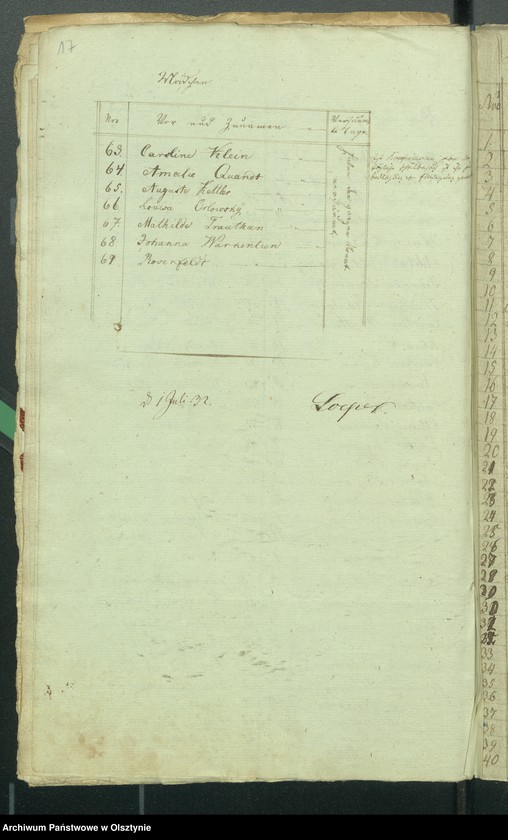 17
Mädchen
Nro
Vor und Zunamen
Versäum
te Tage
63. Caroline Klein
64. Amalie Quandt
65. Auguste Kettler
66 Louisa Orlowsky
67. Mathilde Trauthan
68 Johanna Warkentien
69 Rosenfeldt
d 1 Juli 32.
Loeper.
Nro
1
2
3
4
5
6
7
8
9
10
11
12
13
14
15
16
17
18
19
20
21
22
23
24
25
26
27
28
30
30
32
32
33
34
35
36
37
38
39
40
Archiwum Państwowe w Olsztynie